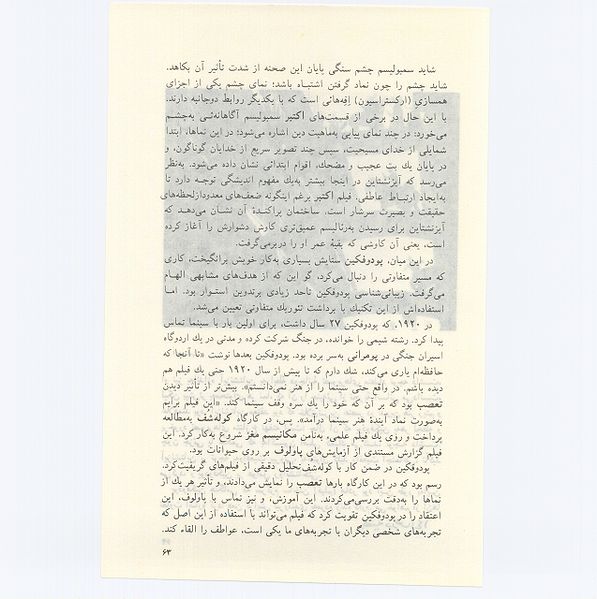 شاید سمبولیسم چشم سنگی پایان این صحنه از شدت تأثیر آن بکاهد.
شاید چشم را چون نماد گرفتن اشتباه باشد؛ نمای چشم یکی از اجزای
همسازی (ارکستراسیون) اِفِه‌هائی است که با یکدیگر روابط دوجانبه دارند.
با این حال در برخی از قسمت‌های اکتبر سمبولیسم آگاهانه‌ئی به‌چشم
می‌خورد: در چند نمای پیاپی به‌ماهیت دین اشاره می‌شود؛ در این نماها، ابتدا
شمایلی از خدای مسیحیت، سپس چند تصویر سریع از خدایان گوناگون، و
در پایان یك بت عجیب و مضحك، اقوام ابتدائی نشان داده می‌شود. به‌نظر
می‌رسد که آیزنشتاین در اینجا بیشتر به‌یك مفهوم اندیشگی توجه دارد تا
به‌ایجاد ارتباط عاطفی. فیلم اکتبر برغم اینگونه ضعف‌های معدود ازلحظه‌های
حقیقت و بصیرت سرشار است. ساختمان پراکندهٔ آن نشان می‌دهد که
آیزنشتاین برای رسیدن به‌رئالیسم عمیق‌تری کاوش دشوارش را آغاز کرده
است، یعنی آن کاوشی که بقیهٔ عمر او را دربرمی‌گرفت.
در این میان، پودوفکین ستایش بسیاری به‌کار خویش برانگیخت، کاری
که مسیر متفاوتی را دنبال می‌کرد، گو این که از هدف‌های مشابهی الهام
می‌گرفت. زیبائی‌شناسی پودوفکین تاحد زیادی برتدوین استوار بود. اما
استفاده‌اش از این تکنیك با برداشت تئوریك متفاوتی تعیین می‌شد.
در ۱۹۲۰، که پودوفکین ۲۷ سال داشت، برای اولین بار با سینما تماس
پیدا کرد. رشته شیمی را خوانده، در جنگ شرکت کرده و مدتی در یك اردوگاه
اسیران جنگی در پومرانی به‌سر برده بود. پودوفکین بعدها نوشت «تا آنجا که
حافظه‌ام یاری می‌کند، شك دارم که تا پیش از سال ۱۹۲۰ حتی یك فیلم هم
دیده باشم. در واقع حتی سینما را از هنر نمی‌دانستم». پیش‌تر از تأثیر دیدن
تعصب بود که بر آن که خود را یك سره وقف سینما کند. «این فیلم برایم
به‌صورت نماد آیندهٔ هنر سینما درآمد». پس، در کارگاه کوله‌شُف به‌مطالعه
پرداخت و روی یك فیلم علمی، به‌نامِ مکانیسم مغز شروع به‌کار کرد. این
فیلم گزارش مستندی از آزمایش‌های پاولوف بر روی حیوانات بود.
پودوفکین در ضمن کار با کوله‌شف‌تحلیل دقیقی از فیلم‌های گریفیت‌کرد.
رسم بود که در این کارگاه بارها تعصب را نمایش می‌دادند، و تأثیر هر یك از
نماها را به‌دقت بررسی‌می‌کردند. این آموزش، و نیز تماس با پاولوف، این
اعتقاد را در پودوفکین تقویت کرد که فیلم می‌تواند با استفاده از این اصل که
تجربه‌های شخصی دیگران با تجربه‌های ما یکی است، عواطف را القاء کند.
۶۳